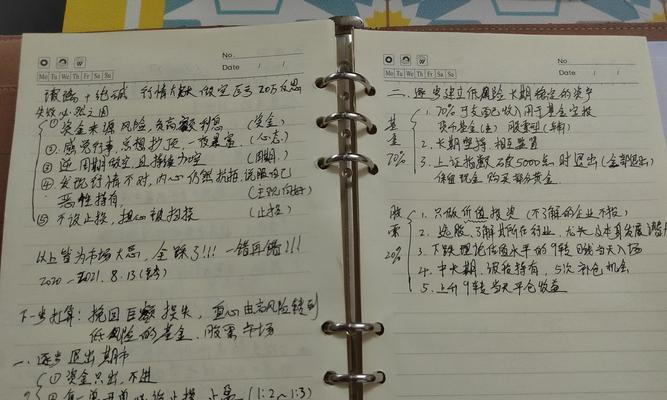 No.
Date / /
Mo Tu We Th Fr Sa Su
行情 做空 20万反思
失败必然之因
① 资金来源风险,负高额利息 (资金)
② 感觉行事,总想抄顶,一夜暴富 (心态)
③ 逆周期做空且持续加空 (周期)
④ 发现行情不对,内心仍然抗拒,说服自己
恶性持有, (主观)
⑤ 不设止损,担心被扫损 (止损)
以上皆为市场大忌,全踩了!!! 一错再错!!!
2020-2021.8.13
下一步打算:挽回巨额损失,重心由高风险转到
低风险的基金、股票市场
一、逐步退出期市
① 资金只出,不进
② 止损 (1:2~1:3)
No.
Date / /
Mo Tu We Th Fr Sa Su
二、逐步建立低风险长期稳定的资产
基金70%
1. 70%可支配收入用于基金定投
货币基金(主) 股票型(辅)
2. 长期坚持 相互监督
3. 上证指数破5000点时退出(全部退出)
保留现金购买部分黄金.
股票20%
1. 只做价值投资 (不了解的企业不投)
2. 选股,了解其所在行业,龙头及其发展潜力
3. 下跌 低估值水平的9转 当天入场
4. 中长期,波段持有,5次补仓机会
5. 上升9转当天平仓收益